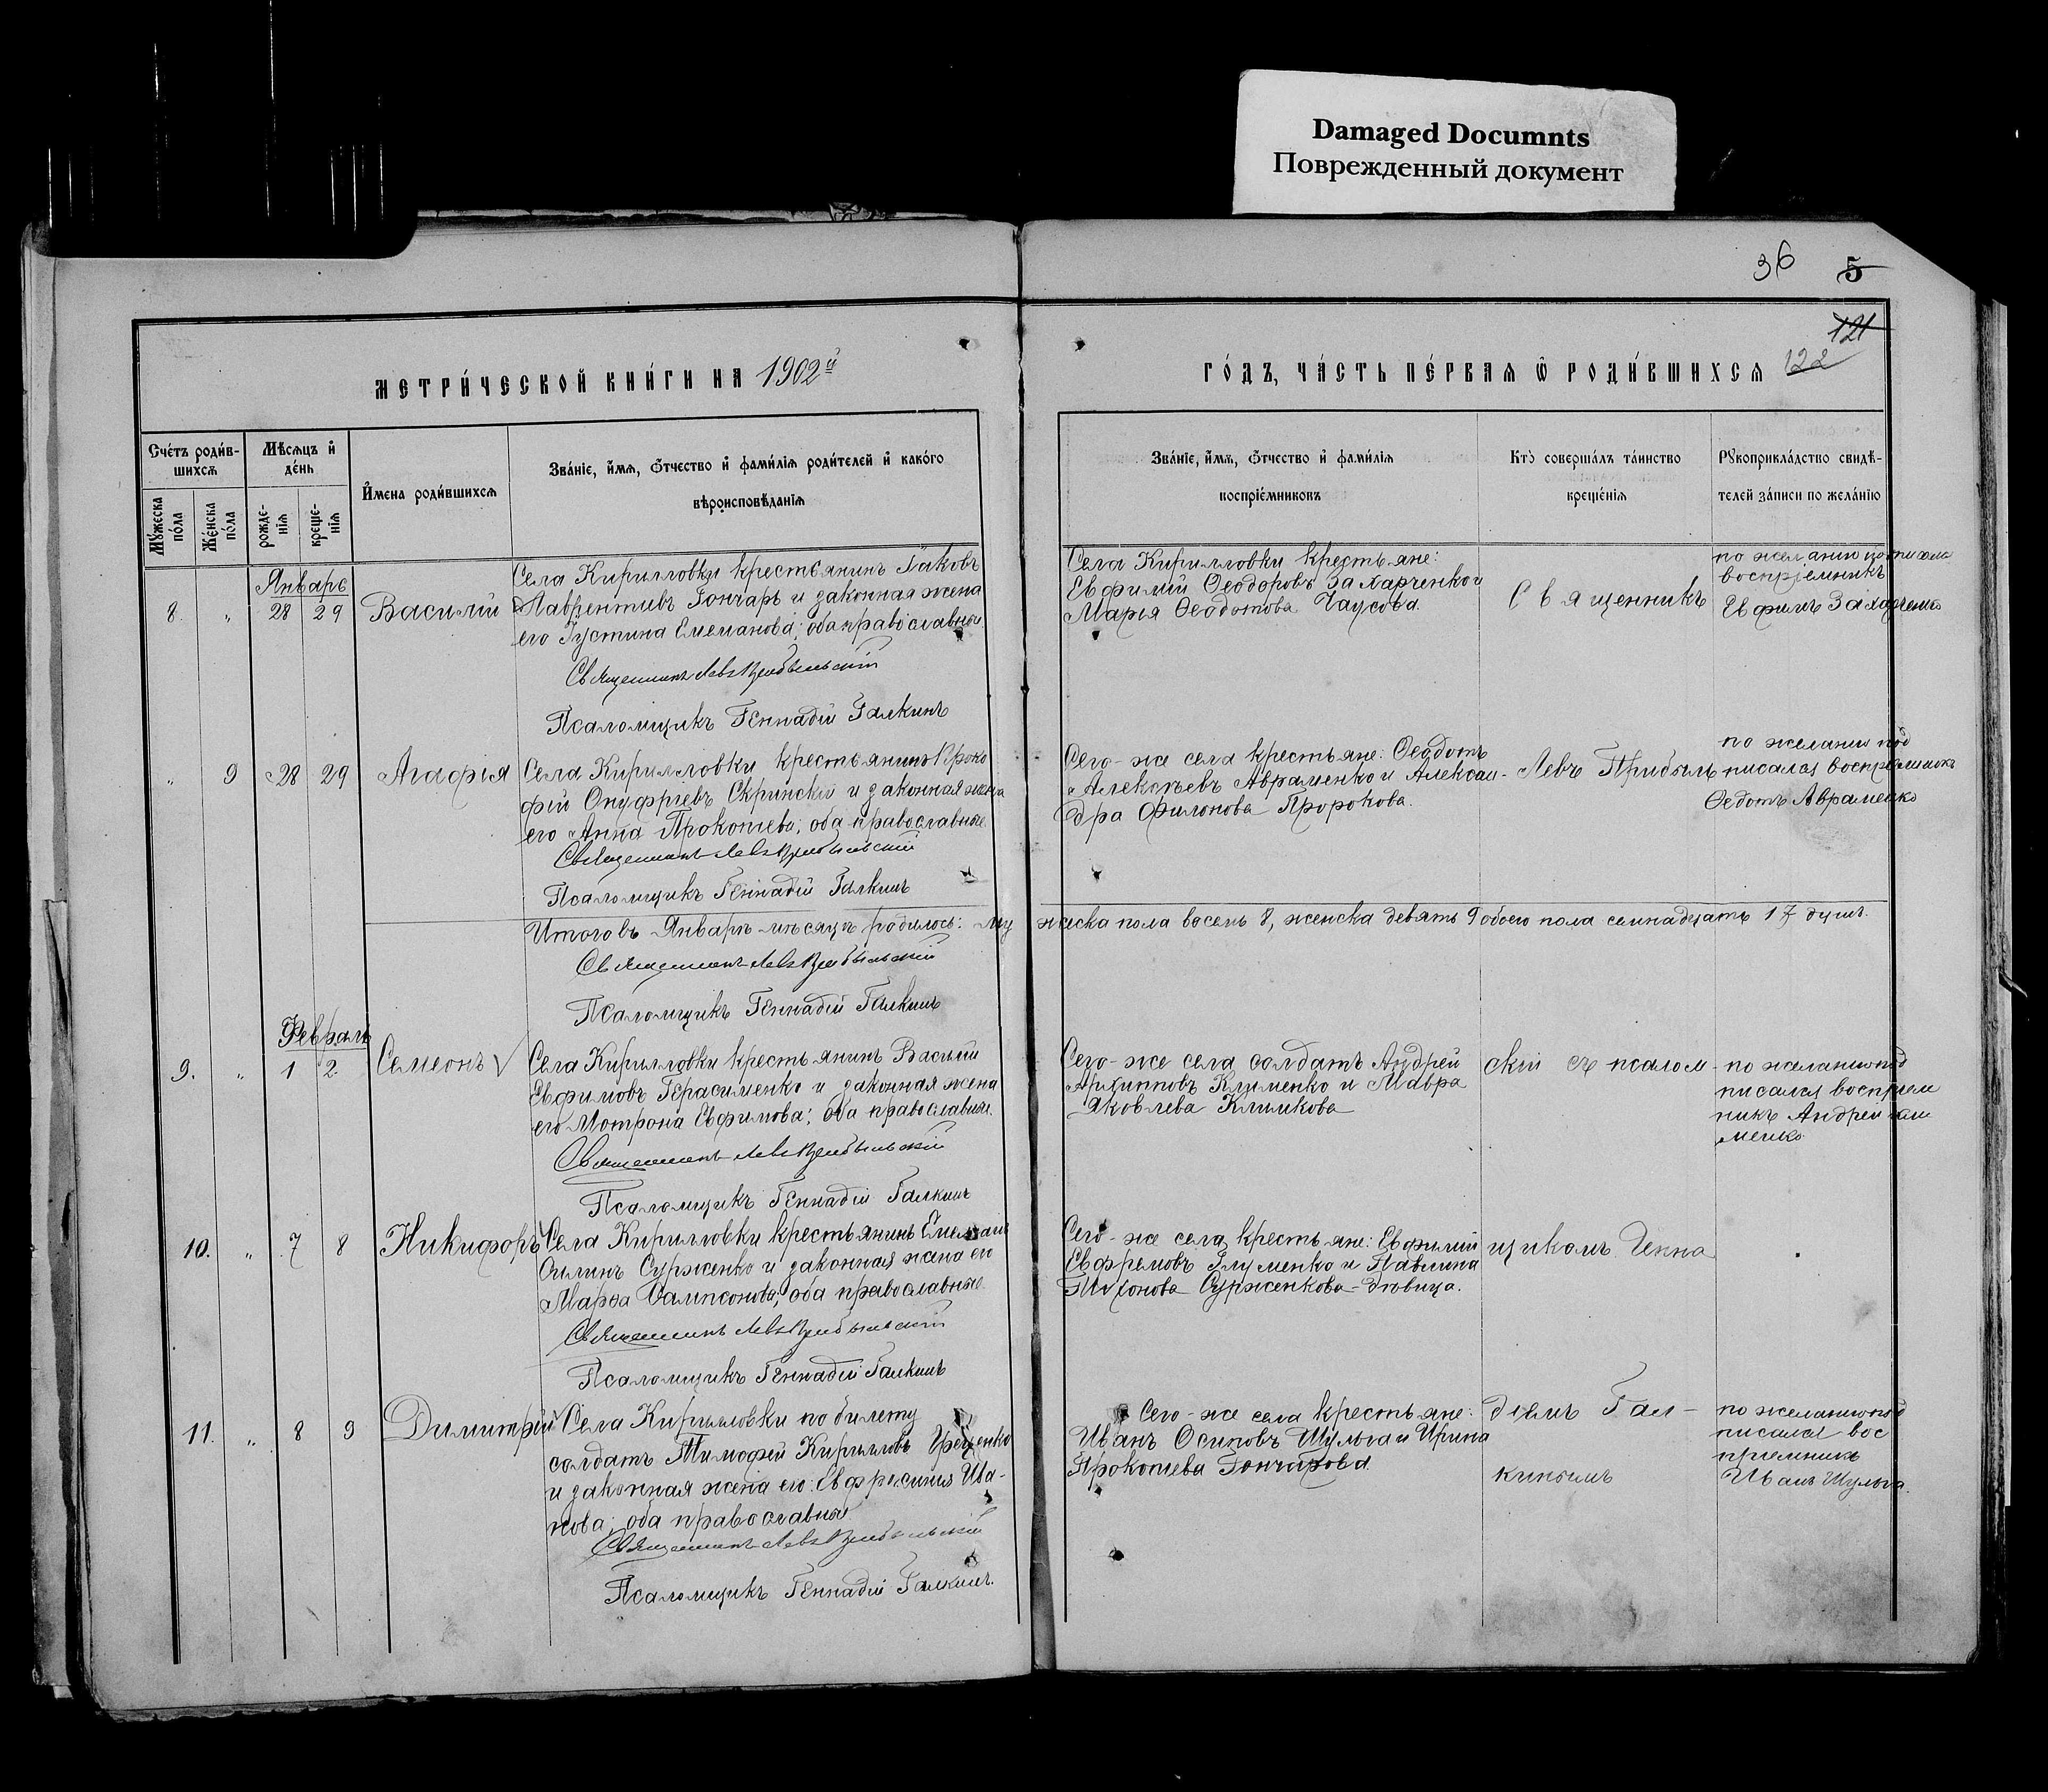 Damaged Documnts
Поврежденный документ
36 5
121
122
МЕТРИ́ЧЕСКОЙ КНИ́ГИ НА 1902й
ГО́ДЪ, ЧА́СТЬ ПЕ́РВАЯ Ѡ РОДИ́ВШИХСЯ
Сче́тъ роди́в-
шихся
Мѣ́сяцъ и
де́нь
Мꙋжеска
по́ла
Же́нска
по́ла
рожде-
нія
креще-
нія
И҆мена роди́вшихся
Зва́нїе, и҆́мя, ѻ҆́тчество и҆ фами́лїя роди́телей и҆ како́го
вѣроисповѣ́данїя
Зва́нїе, и҆́мя, ѻ҆́тчество и҆ фами́лїя
воспрїе́мниковъ
Кто̀ соверша́лъ та́инство
креще́нїя
Рꙋкоприкла́дство свидѣ́-
телей за́писи по жела́нїю
Январь
8. " 28 29 Василій
Села Кирилловки крестьянинъ Іаковъ
Лаврентіевъ Гончаръ и законная жена
его Іустина Емелианова; оба православные
Священникъ Левъ Прибыльскій
Псаломщикъ Геннадій Галкинъ
Села Кирилловки крестьяне:
Евфимій Ѳеодоровъ Захарченко и
Марія Ѳеодотова Чаусова.
Священникъ
по желанію
воспріемникъ
Ефимъ Захарченко
" 9 28 29 Агафія
Села Кирилловки крестьянинъ Проко
фій Онуфріевъ Скринскій и законная жена
его Анна Прокопіева; оба православные.
Священникъ Левъ Прибыльскій
Псаломщикъ Геннадій Галкинъ
Сего-же села крестьяне: Ѳеодотъ
Алексѣевъ Авраменко и Алексан-
дра Филонова Пророкова.
Левъ Прибыль
по желанію под
писался воспріемникъ
Ѳедотъ Авраменко
Итого въ Январѣ мѣсяцѣ родилось: му
жеска пола восемь 8, женска девять 9 обоего пола семнадцать 17 душъ.
Священникъ Левъ Прибыльскій
Псаломщикъ Геннадій Галкинъ
Февраль
9. " 1 2. Семеонъ
Села Кирилловки крестьянинъ Василій
Евфимовъ Герасименко и законная жена
его Мотрона Евфимова; оба православные.
Священникъ Левъ Прибыльскій
Псаломщикъ Геннадій Галкинъ
Сего-же села солдатъ Андрей
Архипповъ Клименко и Мавра
Яковлева Климкова
скій съ псалом-
по желанію под
писался воспріем
никъ Андрей Кли
менко
10. " 7 8 Никифоръ
Села Кирилловки крестьянинъ Емельянъ
Силинъ Сурженко и законная жена его
Марѳа Сампсонова; оба православные.
Священникъ Левъ Прибыльскій
Псаломщикъ Геннадій Галкинъ
Сего-же села крестьяне: Евфимій
Евфремовъ Глуменко и Павлина
Тихонова Сурженкова-дѣвица.
щикомъ Генна
11. " 8 9 Димитрій
Села Кирилловки по билету
солдатъ Тимофей Кирилловъ Греценко
и законная жена его: Евфросинія Ива-
нова; оба православные
Священникъ Левъ Прибыльскій
Псаломщикъ Геннадій Галкинъ.
Сего-же села крестьяне:
Иванъ Осиповъ Шульга и Ирина
Прокопіева Гончарова.
діемъ Гал-
кинымъ
по желанію под
писался вос
пріемникъ
Иванъ Шульга.